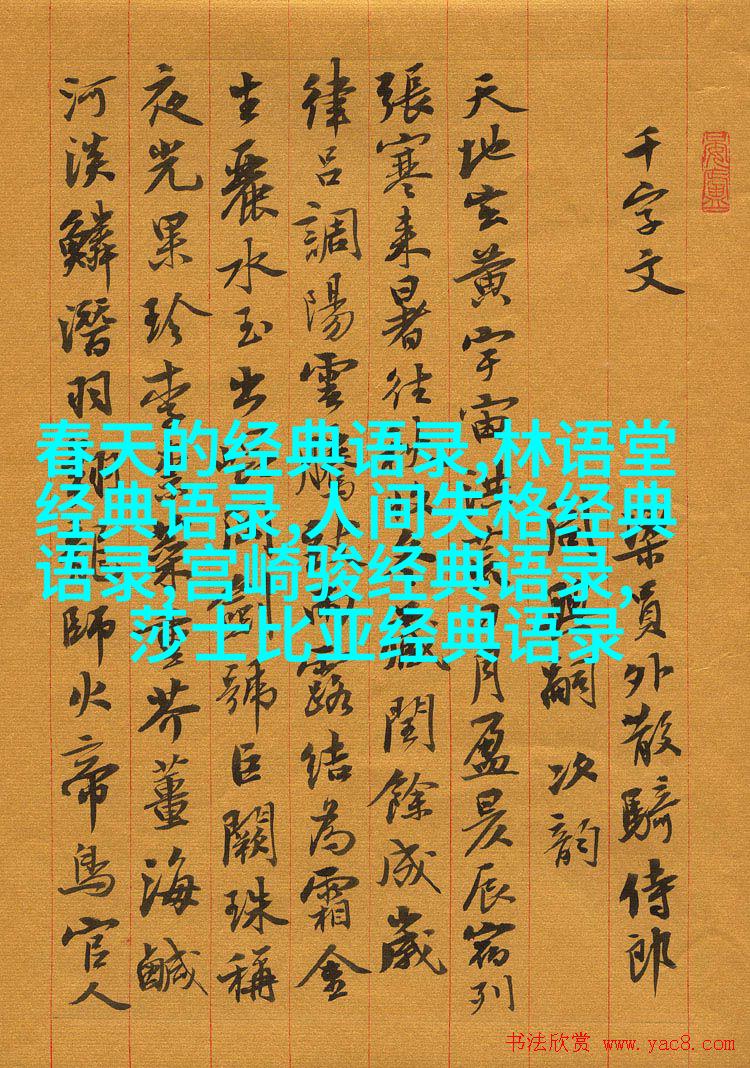 千字文
梁員外散騎侍郎
周興嗣次韵
天地玄黄宇宙洪荒日月盈昃辰宿列
張寒来暑往秋收冬藏閏餘成歲
律吕調陽雲騰致雨露結為霜金
生麗水玉出崑岡劍號巨闕珠稱
夜光果珍李柰菜重芥薑海鹹
河淡鱗潛羽翔龍師火帝鳥官人
春天的经典语录,林语堂
经典语录,人间失格经典
语录,宫崎骏经典语录,
莎士比亚经典语录
书法欣赏 www.yac8.com